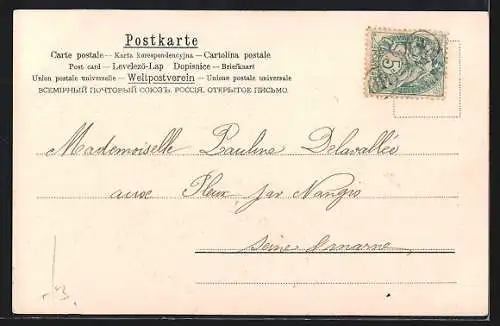 Postkarte
Carte postale — Karta korespondencyjna — Cartolina postale
Post card — Levelező-Lap Dopisnice — Briefkaart
Union postale universelle — Weltpostverein — Unione postale universale
ВСЕМІРНЫЙ ПОЧТОВЫЙ СОЮЗЪ. РОССІЯ. ОТКРЫТОЕ ПИСЬМО.
5
Mademoiselle Pauline Delavallée
aux par Nangis
Seine